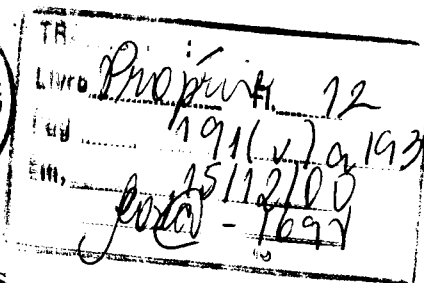 TR. :
Livro Próprio n. 12
Pag 191(v) a 193
Em, 15/12/00
- 1697